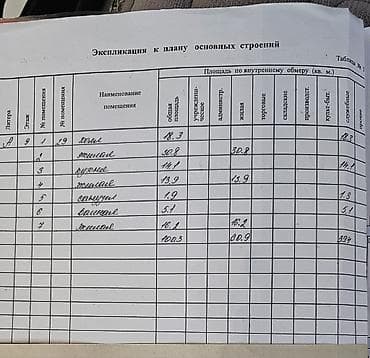 Экспликация к плану основных строений
Таблица №
Литера Этаж № помещения № помещения Наименование помещения Площадь по внутреннему обмеру (кв. м.)
общая площадь учрежденческие администр. жилая торговые складские производст. культ-быт. служебные прочие
А 9 1 29 холл 18.3 18.3
2 жилая 30.8 30.8
3 кухня 14.1 14.1
4 жилая 13.9 13.9
5 санузел 1.9 1.3
6 ванная 5.1 5.1
7 жилая 16.2 16.2
100.3 60.9 39.4